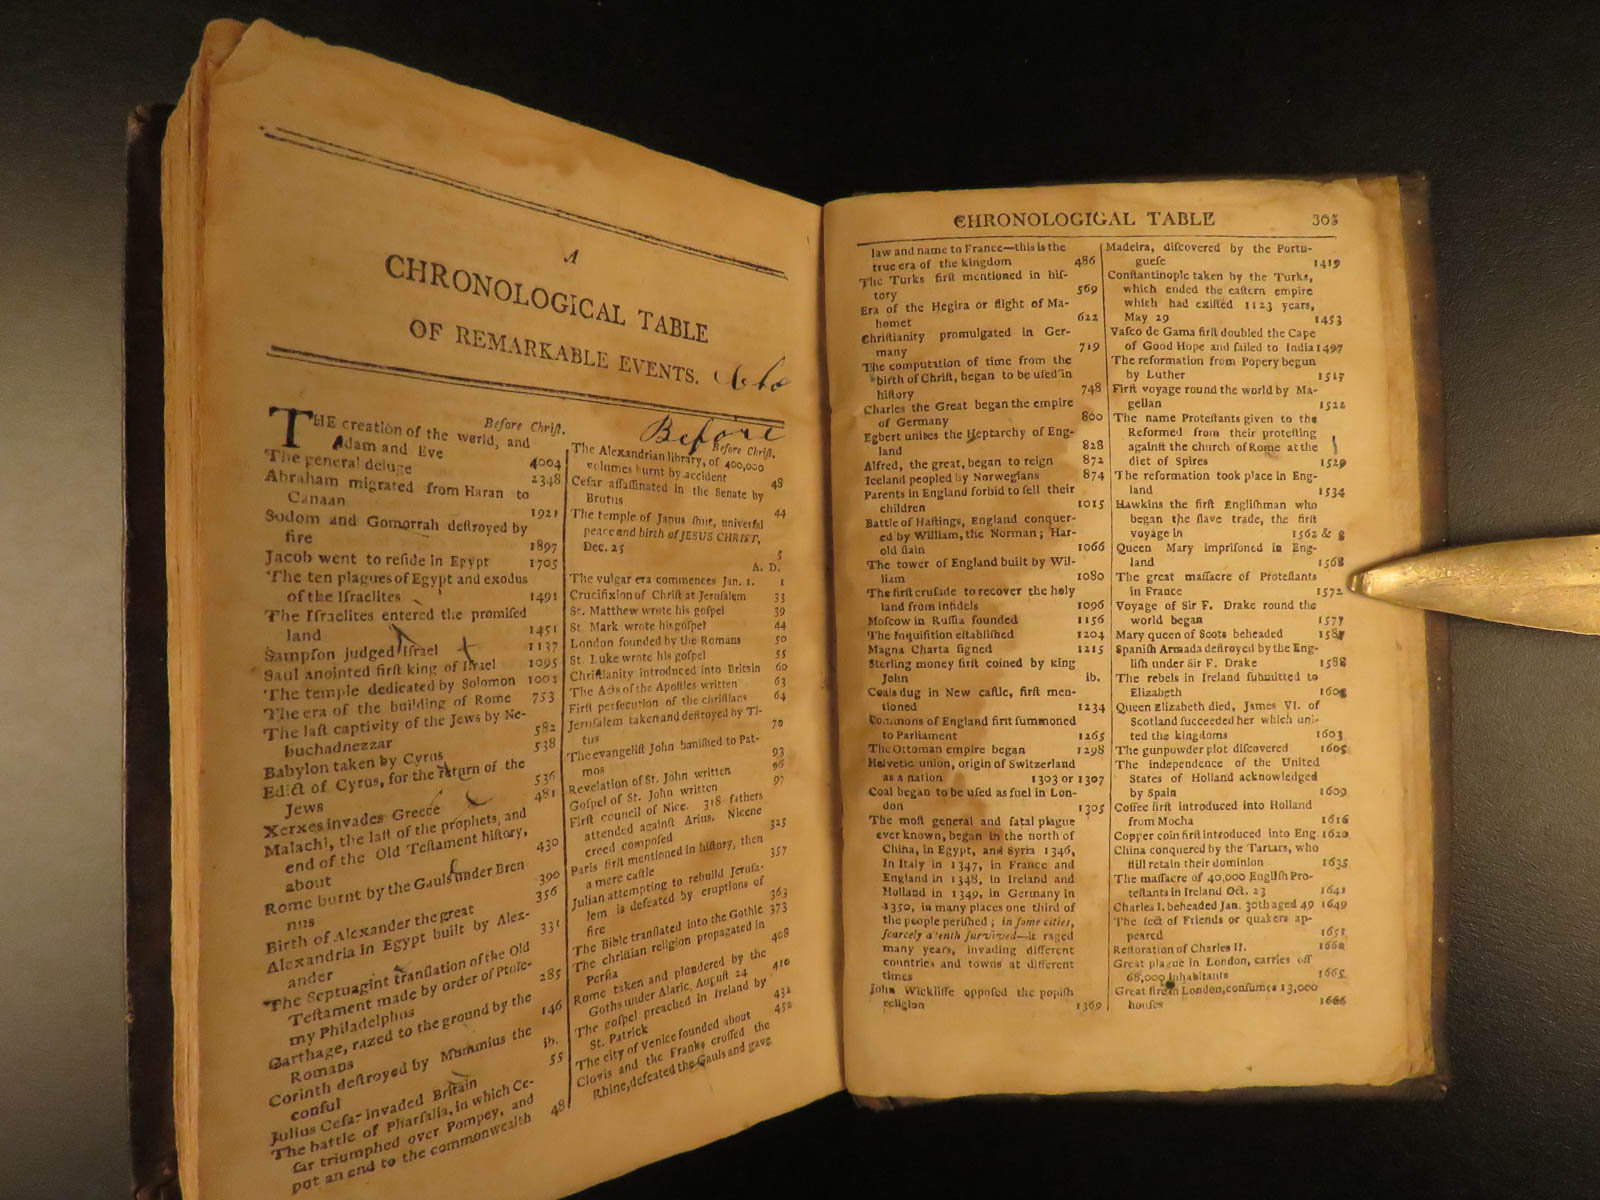 A
CHRONOLOGICAL TABLE
OF REMARKABLE EVENTS.
Before
Before Chriſt.
THE creation of the world, and
Adam and Eve 4004
The general deluge 2348
Abraham migrated from Haran to
Canaan 1921
Sodom and Gomorrah deſtroyed by
fire 1897
Jacob went to reſide in Egypt 1705
The ten plagues of Egypt and exodus
of the Iſraelites 1491
The Iſraelites entered the promiſed
land 1451
Sampſon judged Iſrael 1137
Saul anointed firſt king of Iſrael 1095
The temple dedicated by Solomon 1004
The era of the building of Rome 753
The laſt captivity of the Jews by Ne-
buchadnezzar 582
Babylon taken by Cyrus 538
Edict of Cyrus, for the return of the
Jews 536
Xerxes invades Greece 481
Malachi, the laſt of the prophets, and
end of the Old Teſtament hiſtory,
about 430
Rome burnt by the Gauls under Bren
nus 390
Birth of Alexander the great 356
Alexandria in Egypt built by Alex-
ander 331
The Septuagint tranſlation of the Old
Teſtament made by order of Ptole-
my Philadelphus 285
Carthage, razed to the ground by the
Romans 146
Corinth deſtroyed by Mummius the
conſul ib.
Julius Ceſar invaded Britain 55
The battle of Pharſalia, in which Ce-
ſar triumphed over Pompey, and
put an end to the commonwealth 48
Before Chriſt.
The Alexandrian library, of 400,000
volumes burnt by accident 48
Ceſar aſſaſſinated in the Senate by
Brutus 44
The temple of Janus ſhut, univerſal
peace and birth of JESUS CHRIST,
Dec. 25 5
A. D.
The vulgar era commences Jan. 1. 1
Crucifixion of Chriſt at Jeruſalem 33
St. Matthew wrote his goſpel 39
St. Mark wrote his goſpel 44
London founded by the Romans 50
St. Luke wrote his goſpel 55
Chriſtianity introduced into Britain 60
The Acts of the Apoſtles written 63
Firſt perſecution of the chriſtians 64
Jeruſalem taken and deſtroyed by Ti-
tus 70
The evangeliſt John baniſhed to Pat-
mos 93
Revelation of St. John written 96
Goſpel of St. John written 97
Firſt council of Nice. 318 fathers
attended againſt Arius. Nicene
creed compoſed 325
Paris firſt mentioned in hiſtory, then
a mere caſtle 357
Julian attempting to rebuild Jeruſa-
lem is defeated by eruptions of
fire 363
The Bible tranſlated into the Gothic 373
The chriſtian religion propagated in
Perſia 408
Rome taken and plundered by the
Goths under Alaric, Auguſt 24 410
The goſpel preached in Ireland by
St. Patrick 432
The city of Venice founded about 452
Clovis and the Franks croſſed the
Rhine, defeated the Gauls and gave
CHRONOLOGICAL TABLE 305
law and name to France—this is the
true era of the kingdom 486
The Turks firſt mentioned in hiſ-
tory 569
Era of the Hegira or flight of Ma-
homet 622
Chriſtianity promulgated in Ger-
many 719
The computation of time from the
birth of Chriſt, began to be uſed in
hiſtory 748
Charles the Great began the empire
of Germany 800
Egbert unites the Heptarchy of Eng-
land 828
Alfred, the great, began to reign 872
Iceland peopled by Norwegians 874
Parents in England forbid to ſell their
children 1015
Battle of Haſtings, England conquer-
ed by William, the Norman; Har-
old ſlain 1066
The tower of England built by Wil-
liam 1080
The firſt cruſade to recover the holy
land from infidels 1096
Moſcow in Ruſſia founded 1156
The Inquiſition eſtabliſhed 1204
Magna Charta ſigned 1215
Sterling money firſt coined by king
John ib.
Coals dug in New caſtle, firſt men-
tioned 1234
Commons of England firſt ſummoned
to Parliament 1265
The Ottoman empire began 1298
Helvetic union, origin of Switzerland
as a nation 1303 or 1307
Coal began to be uſed as fuel in Lon-
don 1305
The moſt general and fatal plague
ever known, began in the north of
China, in Egypt, and Syria 1346,
In Italy in 1347, in France and
England in 1348, in Ireland and
Holland in 1349, in Germany in
1350, in many places one third of
the people periſhed; in ſome cities,
ſcarcely a tenth ſurvived—it raged
many years, invading different
countries and towns at different
times
John Wickliffe oppoſed the popiſh
religion 1369
Madeira, diſcovered by the Portu-
gueſe 1419
Conſtantinople taken by the Turks,
which ended the eaſtern empire
which had exiſted 1123 years,
May 29 1453
Vaſco de Gama firſt doubled the Cape
of Good Hope and ſailed to India 1497
The reformation from Popery begun
by Luther 1517
Firſt voyage round the world by Ma-
gellan 1522
The name Proteſtants given to the
Reformed from their proteſting
againſt the church of Rome at the
diet of Spires 1529
The reformation took place in Eng-
land 1534
Hawkins the firſt Engliſhman who
began the ſlave trade, the firſt
voyage in 1562 & 8
Queen Mary impriſoned in Eng-
land 1568
The great maſſacre of Proteſtants
in France 1572
Voyage of Sir F. Drake round the
world began 1577
Mary queen of Scots beheaded 1587
Spaniſh Armada deſtroyed by the Eng-
liſh under Sir F. Drake 1588
The rebels in Ireland ſubmitted to
Elizabeth
Queen Elizabeth died, James VI. of
Scotland ſucceeded her which uni-
ted the kingdoms 1603
The gunpowder plot diſcovered 1605
The independence of the United
States of Holland acknowledged
by Spain 1609
Coffee firſt introduced into Holland
from Mocha 1616
Copper coin firſt introduced into Eng. 1620
China conquered by the Tartars, who
ſtill retain their dominion 1635
The maſſacre of 40,000 Engliſh Pro-
teſtants in Ireland Oct. 23 1641
Charles I. beheaded Jan. 30th aged 49 1649
The ſect of Friends or quakers ap-
peared 1651
Reſtoration of Charles II. 1660
Great plague in London, carries off
68,000 inhabitants 1665
Great fire in London, conſumes 13,000
houſes 1666